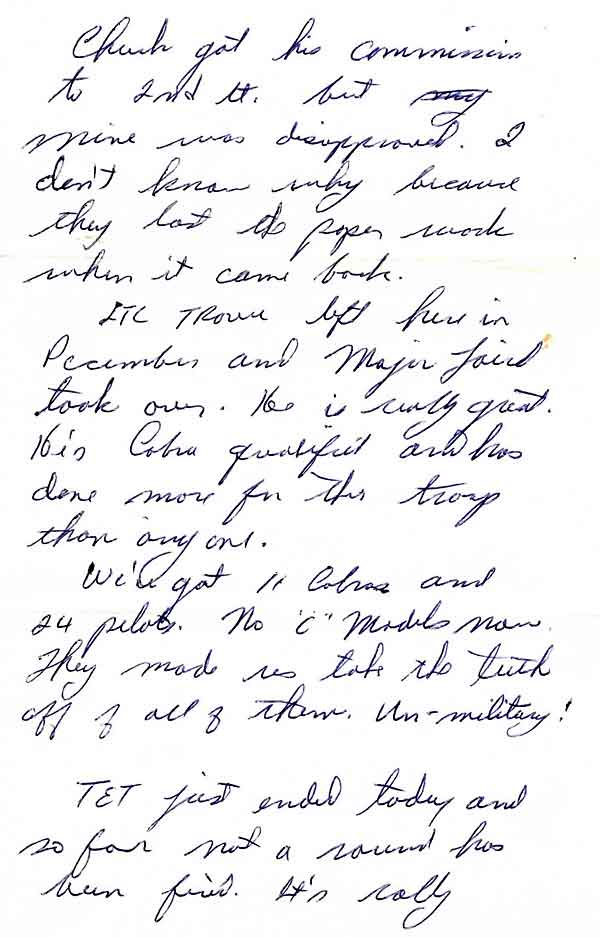 Chuck got his commission
to 2nd Lt. but my
mine was disapproved. I
don't know why because
they lost the paper work
when it came back.
LTC TROWE left here in
December and Major Laird
took over. He is really great.
He's Cobra qualified and has
done more for this troop
than anyone.
We've got 11 Cobras and
24 pilots. No "C" Models now.
They made us take the teeth
off of all of them. Un-military!
TET just ended today and
so far not a round has
been fired. It's really